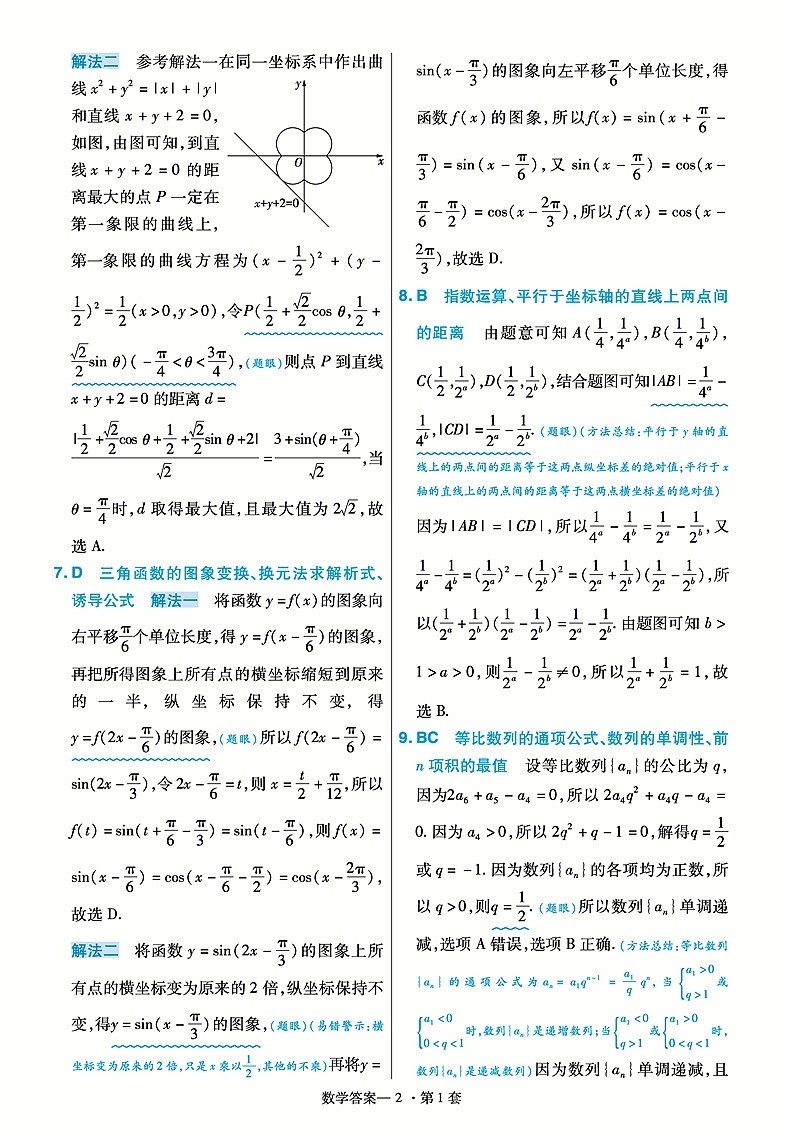 解法二 参考解法一在同一坐标系中作出曲
线 x² + y² = |x| + |y|
和直线 x + y + 2 = 0,
如图,由图可知,到直
线 x + y + 2 = 0 的距
离最大的点 P 一定在
第一象限的曲线上,
y
O
x
x+y+2=0
第一象限的曲线方程为 (x − 1/2)² + (y −
1/2)² = 1/2 (x>0,y>0),令P(1/2 + √2/2 cos θ, 1/2 +
√2/2 sin θ)(−π/4 < θ < 3π/4),(题眼)则点 P 到直线
x + y + 2 = 0 的距离 d =
|1/2 + √2/2 cos θ + 1/2 + √2/2 sin θ + 2| / √2 = 3 + sin(θ + π/4) / √2,当
θ = π/4 时,d 取得最大值,且最大值为 2√2,故
选 A.
7. D 三角函数的图象变换、换元法求解析式、
诱导公式 解法一 将函数 y = f(x) 的图象向
右平移 π/6 个单位长度,得 y = f(x − π/6) 的图象,
再把所得图象上所有点的横坐标缩短到原来
的一半,纵坐标保持不变,得
y = f(2x − π/6) 的图象,(题眼)所以 f(2x − π/6) =
sin(2x − π/3),令 2x − π/6 = t,则 x = t/2 + π/12,所以
f(t) = sin(t + π/6 − π/3) = sin(t − π/6),则 f(x) =
sin(x − π/6) = cos(x − π/6 − π/2) = cos(x − 2π/3),
故选 D.
解法二 将函数 y = sin(2x − π/3) 的图象上所
有点的横坐标变为原来的 2 倍,纵坐标保持不
变,得y = sin(x − π/3) 的图象,(题眼)(易错警示:横
坐标变为原来的 2 倍,只是 x 乘以 1/2,其他的不乘)再将y =
sin(x − π/3) 的图象向左平移 π/6 个单位长度,得
函数 f(x) 的图象,所以f(x) = sin(x + π/6 −
π/3) = sin(x − π/6),又 sin(x − π/6) = cos(x −
π/6 − π/2) = cos(x − 2π/3),所以 f(x) = cos(x −
2π/3),故选 D.
8. B 指数运算、平行于坐标轴的直线上两点间
的距离 由题意可知 A(1/4, 1/4ᵃ),B(1/4, 1/4ᵇ),
C(1/2, 1/2ᵃ),D(1/2, 1/2ᵇ),结合题图可知|AB| = 1/4ᵃ −
1/4ᵇ,|CD| = 1/2ᵃ − 1/2ᵇ. (题眼)(方法总结:平行于 y 轴的直
线上的两点间的距离等于这两点纵坐标差的绝对值;平行于 x
轴的直线上的两点间的距离等于这两点横坐标差的绝对值)
因为 |AB| = |CD|,所以 1/4ᵃ − 1/4ᵇ = 1/2ᵃ − 1/2ᵇ,又
1/4ᵃ − 1/4ᵇ = (1/2ᵃ)² − (1/2ᵇ)² = (1/2ᵃ + 1/2ᵇ)(1/2ᵃ − 1/2ᵇ),所
以(1/2ᵃ + 1/2ᵇ)(1/2ᵃ − 1/2ᵇ) = 1/2ᵃ − 1/2ᵇ. 由题图可知 b >
1 > a > 0,则 1/2ᵃ − 1/2ᵇ ≠ 0,所以 1/2ᵃ + 1/2ᵇ = 1,故
选 B.
9. BC 等比数列的通项公式、数列的单调性、前
n 项积的最值 设等比数列{aₙ}的公比为 q,
因为2a₆ + a₅ − a₄ = 0,所以 2a₄q² + a₄q − a₄ =
0. 因为 a₄ > 0,所以 2q² + q − 1 = 0,解得q = 1/2
或 q = −1. 因为数列{aₙ}的各项均为正数,所
以 q > 0,则q = 1/2. (题眼)所以数列{aₙ}单调递
减,选项 A 错误,选项 B 正确. (方法总结:等比数列
{aₙ} 的通项公式为 aₙ = a₁qⁿ⁻¹ = a₁/q qⁿ,当 {a₁>0 q>1 或
{a₁<0 0<q<1 时,数列{aₙ}是递增数列;当{a₁<0 q>1 或{a₁>0 0<q<1 时,
数列{aₙ}是递减数列)因为数列{aₙ}单调递减,且
数学答案— 2 · 第 1 套